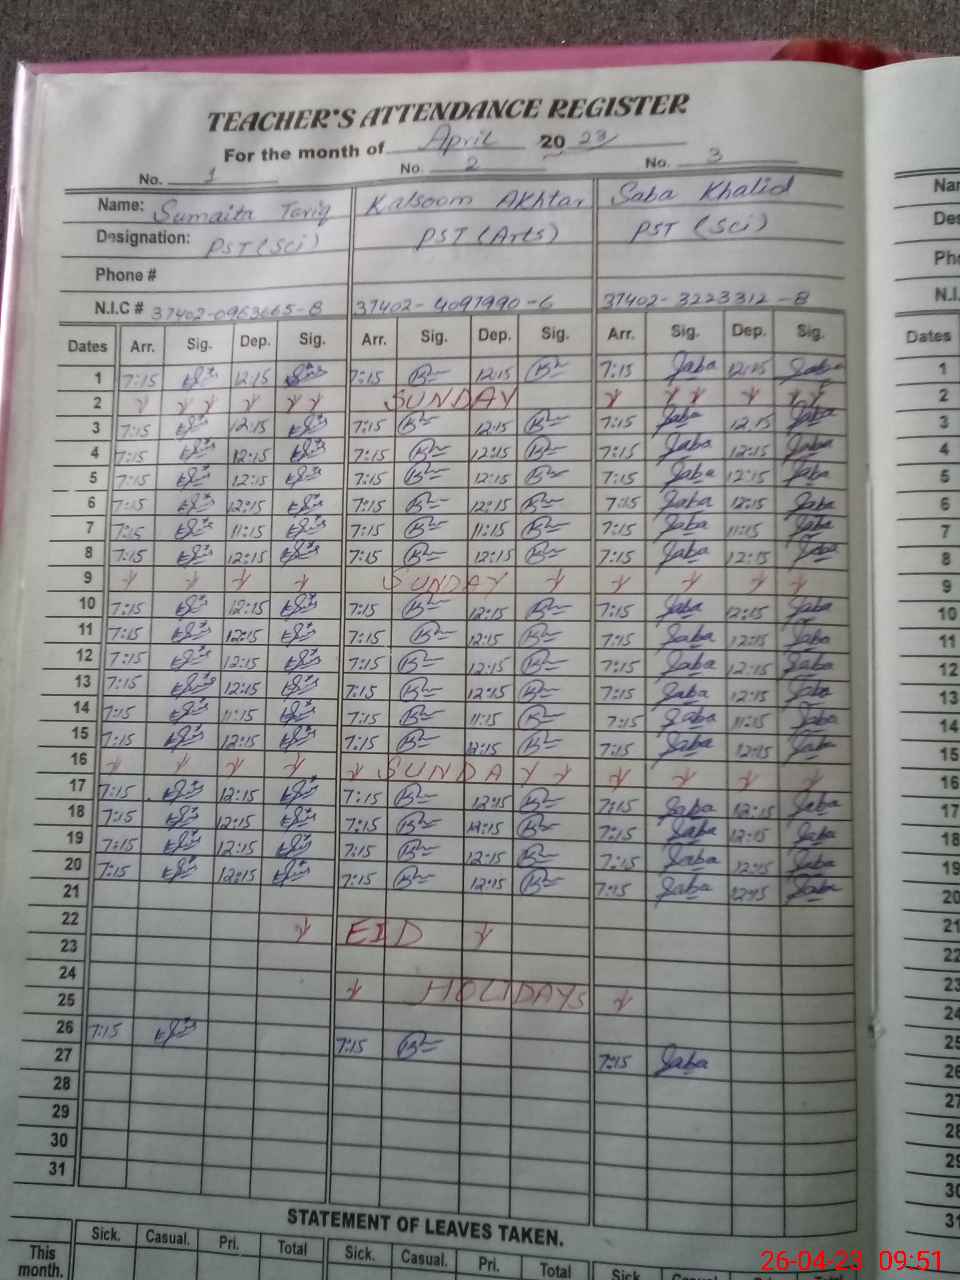 TEACHER'S ATTENDANCE REGISTER
For the month of April 2023
No. 1 No. 2 No. 3
Name: Sumaita Tariq Kalsoom Akhtar Saba Khalid
Designation: PST (Sci) PST (Arts) PST (Sci)
Phone #
N.I.C # 37402-0963665-8 37402-4097990-6 37402-3223312-8
Dates Arr. Sig. Dep. Sig. Arr. Sig. Dep. Sig. Arr. Sig. Dep. Sig.
1 7:15 12:15 7:15 12:15 7:15 Saba 12:15 Saba
2 SUNDAY
3 7:15 12:15 7:15 12:15 7:15 Saba 12:15 Saba
4 7:15 12:15 7:15 12:15 7:15 Saba 12:15 Saba
5 7:15 12:15 7:15 12:15 7:15 Saba 12:15 Saba
6 7:15 12:15 7:15 12:15 7:15 Saba 12:15 Saba
7 7:15 11:15 7:15 11:15 7:15 Saba 11:15 Saba
8 7:15 12:15 7:15 12:15 7:15 Saba 12:15 Saba
9 SUNDAY
10 7:15 12:15 7:15 12:15 7:15 Saba 12:15 Saba
11 7:15 12:15 7:15 12:15 7:15 Saba 12:15 Saba
12 7:15 12:15 7:15 12:15 7:15 Saba 12:15 Saba
13 7:15 12:15 7:15 12:15 7:15 Saba 12:15 Saba
14 7:15 11:15 7:15 11:15 7:15 Saba 11:15 Saba
15 7:15 12:15 7:15 12:15 7:15 Saba 12:15 Saba
16 SUNDAY
17 7:15 12:15 7:15 12:15 7:15 Saba 12:15 Saba
18 7:15 12:15 7:15 12:15 7:15 Saba 12:15 Saba
19 7:15 12:15 7:15 12:15 7:15 Saba 12:15 Saba
20 7:15 12:15 7:15 12:15 7:15 Saba 12:15 Saba
21
22 EID
23
24
25 HOLIDAYS
26 7:15 7:15 7:15 Saba
27
28
29
30
31
STATEMENT OF LEAVES TAKEN.
Sick. Casual. Pri. Total Sick. Casual. Pri. Total Sick Casual
This month.
Nar
Des
Pho
N.I.
Dates
1
2
3
4
5
6
7
8
9
10
11
12
13
14
15
16
17
18
19
20
21
22
23
24
25
26
27
28
29
30
31
26-04-23 09:51